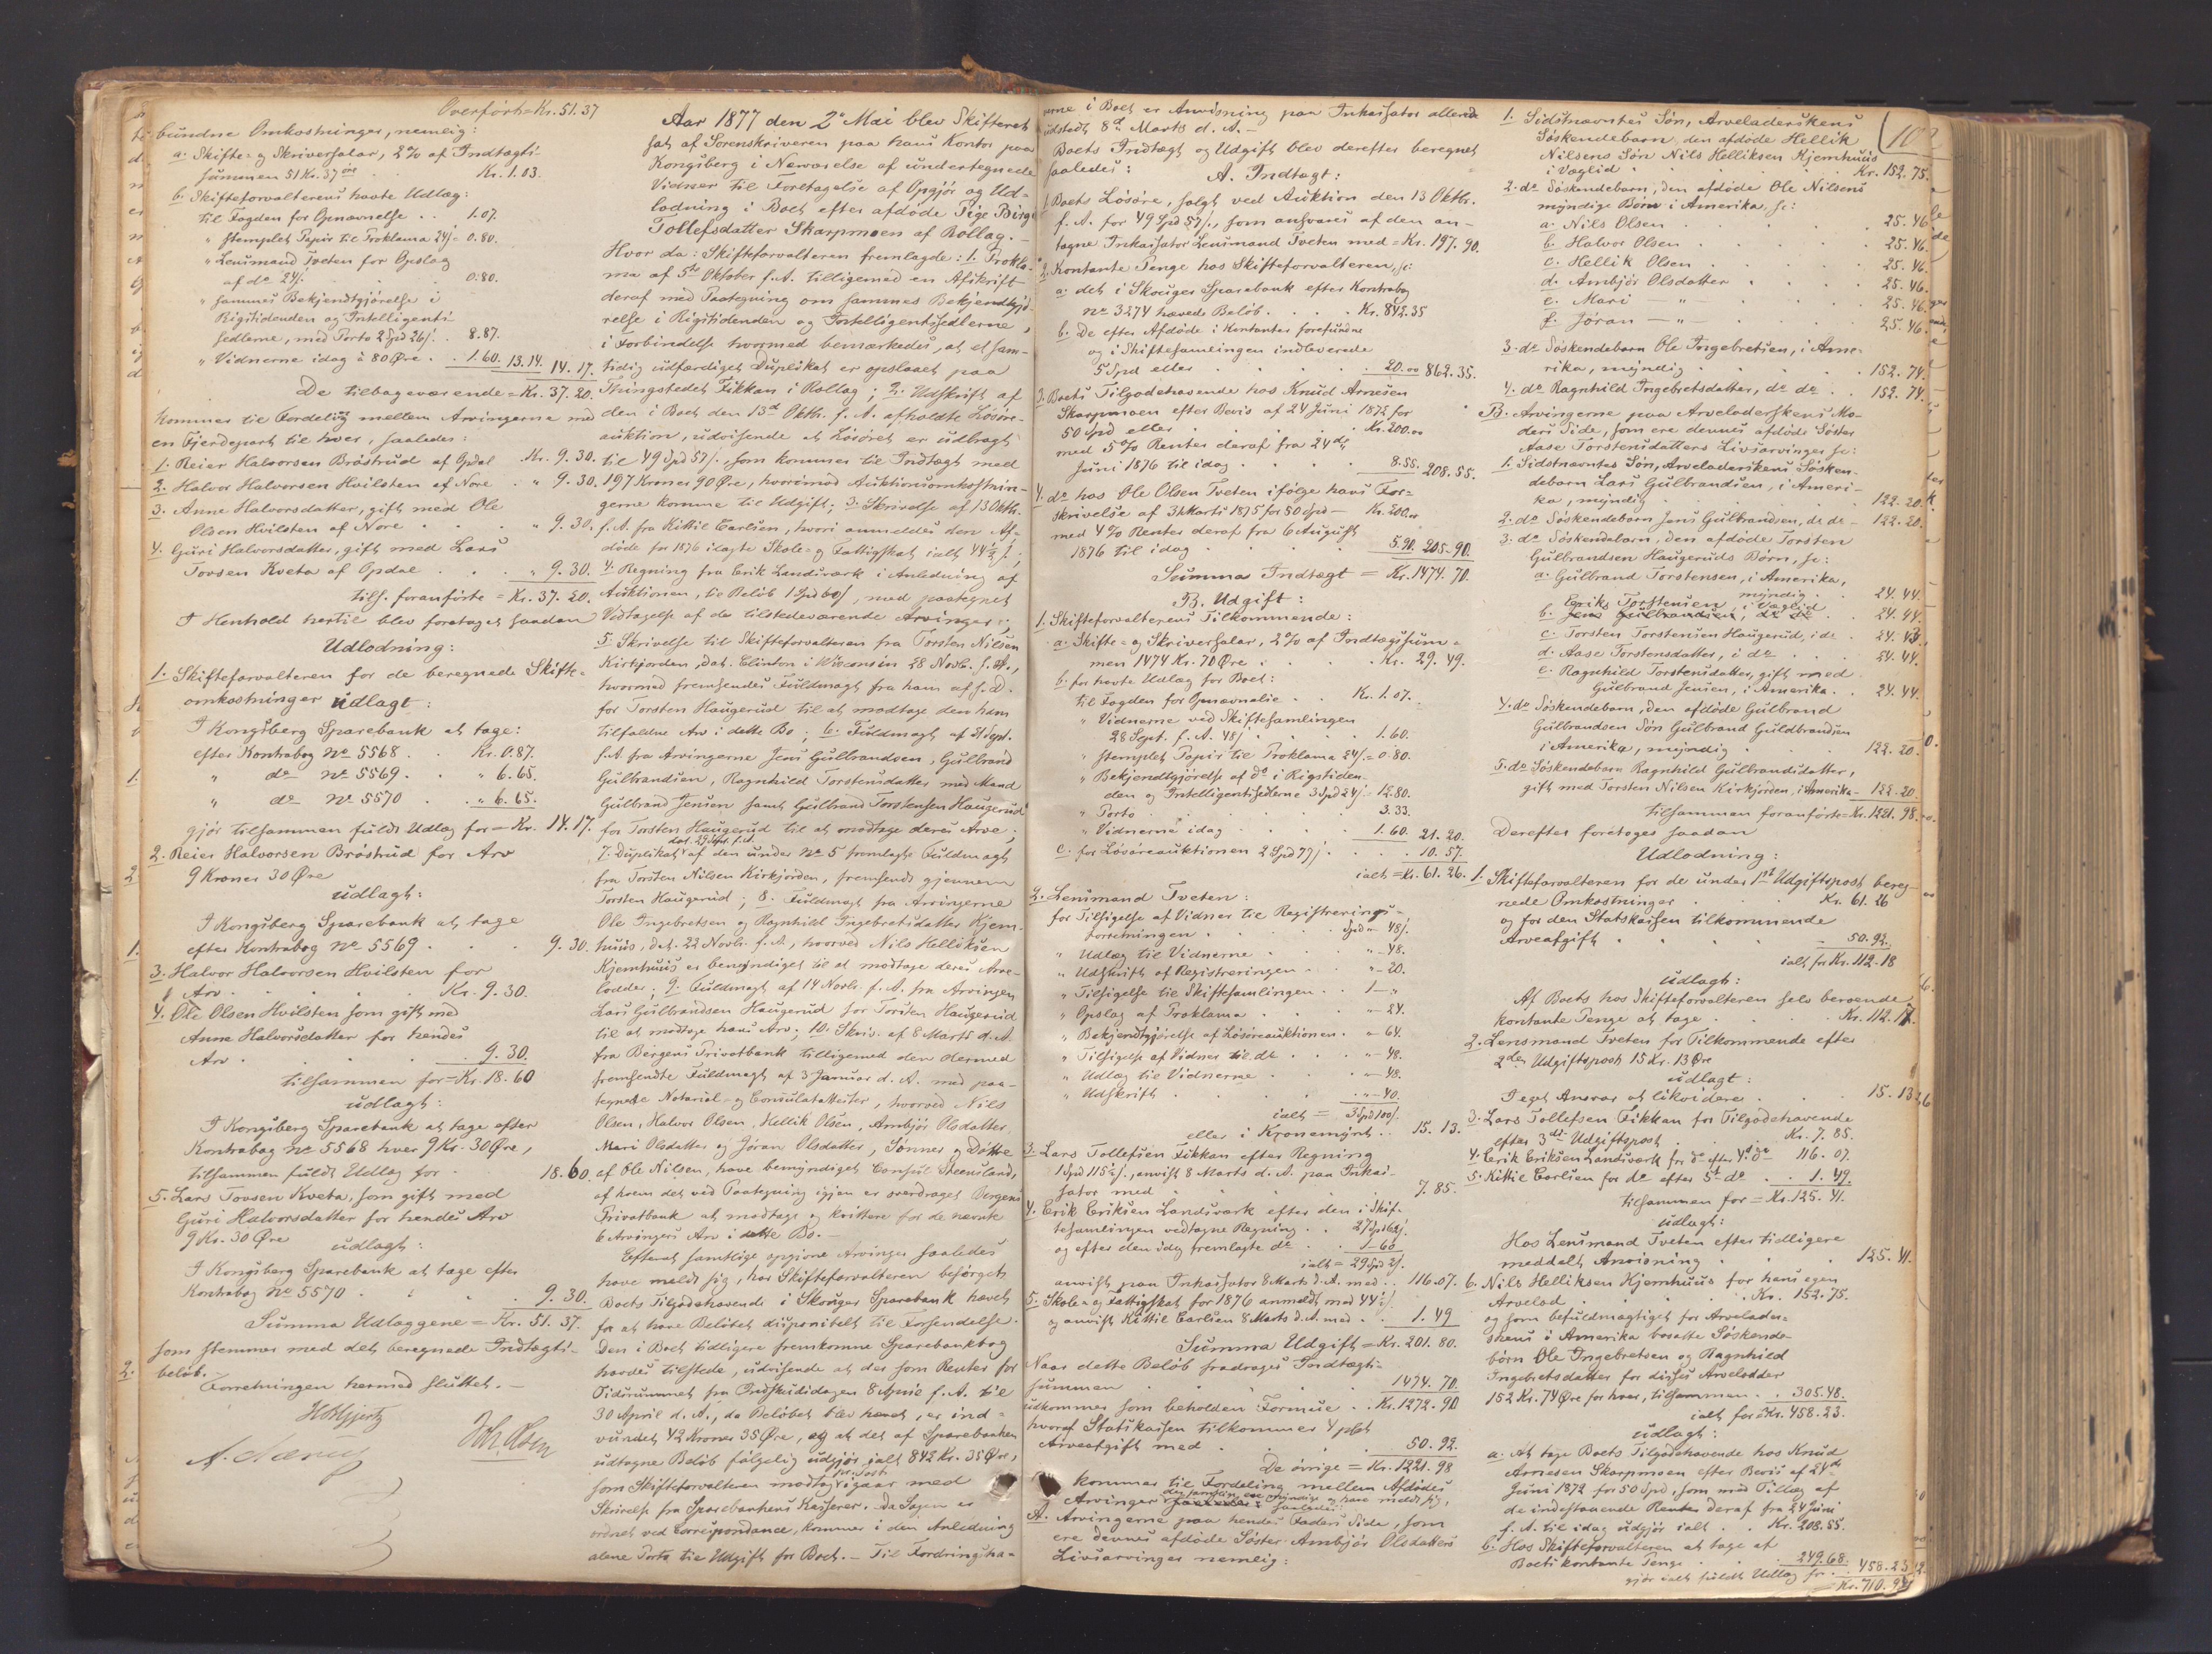 Overført=Kr. 51.37
bundne Omkostninger, nemlig:
a. Skifte= og Skriversalær, 2% af Indtægts-
summen 51 Kr. 37 Øre . . Kr. 1.03.
b. Skifteforvalterens havte Udlæg:
til Fogden for Opnævnelse . . 1.07.
" stemplet Papir til Proklama 24/= 0.80.
" Lensmand Tveten for Opslag
af do 24/. . . . 0.80.
" sammes Bekjendtgjørelse i
Rigstidenden og Intelligents-
sedlerne, med Porto 2 Spd 26/. . 8.87.
" Vidnerne idag à 80 Øre . . 1.60. 13.14. 14.17.
De tilbageværende = Kr. 37.20.
kommer til Fordeling mellem Arvingerne med
en Fjerdepart til hver, saaledes:
1. Reier Halvorsen Bröstrud af Opdal . Kr. 9.30.
2. Halvor Halvorsen Hvilsten af Nore . " 9.30.
3. Anne Halvorsdatter, gift med Ole
Olsen Hvilsten af Nore . . . " 9.30.
4. Guri Halvorsdatter, gift med Lars
Tovsen Kveta af Opdal . . . " 9.30.
tils. foranførte = Kr. 37.20.
I Henhold hertil blev foretaget saadan
Udlodning:
1. Skifteforvalteren for de beregnede Skifte=
omkostninger udlagt:
I Kongsberg Sparebank at tage:
efter Kontrabog No 5568 . . Kr. 0.87.
" do No 5569 . . " 6.65.
" do No 5570 . . " 6.65.
gjør tilsammen fuldt Udlæg for = Kr. 14.17.
2. Reier Halvorsen Bröstrud for Arv
9 Kroner 30 Øre
udlagt:
I Kongsberg Sparebank at tage
efter Kontrabog No 5569 . . . 9.30.
3. Halvor Halvorsen Hvilsten for
Arv . . . . Kr. 9.30.
4. Ole Olsen Hvilsten som gift med
Anne Halvorsdatter for hendes
Arv . . . . 9.30.
tilsammen for = Kr. 18.60
udlagt:
I Kongsberg Sparebank at tage efter
Kontrabog No 5568 hver 9 Kr. 30 Øre,
tilsammen fuldt Udlæg for . . 18.60.
5. Lars Tovsen Kveta, som gift med
Guri Halvorsdatter for hendes Arv
9 Kr. 30 Øre udlagt:
I Kongsberg Sparebank at tage efter
Kontrabog No 5570 . . . . 9.30.
Summa Udlæggene = Kr. 51.37.
som stemmer med det beregnede Indtægts-
beløb.
Forretningen hermed sluttet. —
Joh. Olsen
Aar 1877 den 2den Mai blev Skifteret
sat af Sorenskriveren paa hans Kontor paa
Kongsberg i Nærværelse af undertegnede
Vidner til Foretagelse af Opgjør og Ud-
lodning i Boet efter afdøde Pige Birgit
Tollefsdatter Skarpmoen af Rollag. —
Hvor da: Skifteforvalteren fremlagde: 1. Prokla-
ma af 5te Oktober f. A. tilligemed en Afskrift
deraf med Paategning om sammes Bekjendtgjø-
relse i Rigstidenden og Intelligentssedlerne,
i Forbindelse hvormed bemærkedes, at et sam-
tidig udfærdiget Duplikat er opslaaet paa
Thingstedet Fikkan i Rollag; 2. Udskrift af
den i Boet den 13de Oktbr. f. A. afholdte Løsøre-
auktion, udvisende at Løsøret er udbragt
til 49 Spd 57/., som kommer til Indtægt med
197 Kroner 90 Øre, hvorimod Auktionsomkostnin-
gerne komme til Udgift; 3. Skrivelse af 13 Oktbr.
f. A. fra Kittil Carlsen, hvori anmeldes den Af-
døde for 1876 ilagte Skole- og Fattigskat ialt 44½ /.;
4. Regning fra Erik Landsværk i Anledning af
Auktionen, til Beløb 1 Spd 60/, med paategnet
Vedtagelse af de tilstedeværende Arvinger;
5. Skrivelse til Skifteforvalteren fra Torsten Nilsen
Kirkjorden, dat. Clinton i Wisconsin 28 Novb. f. A.,
hvormed fremsendes Fuldmagt fra ham af s. D.
for Torsten Haugerud til at modtage den ham
tilfaldne Arv i dette Bo; 6. Fuldmagt af 21 Sept.
f. A. fra Arvingerne Jens Gulbrandsen, Gulbrand
Gulbrandsen, Ragnhild Torstensdatter med Mand
Gulbrand Jensen samt Gulbrand Torstensen Haugerud
for Torsten Haugerud til at modtage deres Arv;
dat. 29 Sept. f. A.
7. Duplikat af den under No 5 fremlagte Fuldmagt
fra Torsten Nilsen Kirkjorden, fremsendt gjennem
Torsten Haugerud; 8. Fuldmagt fra Arvingerne
Ole Ingebretsen og Ragnhild Ingebretsdatter Kjem-
huus, dat. 22 Novbr. f. A., hvorved Nils Helliksen
Kjemhuus er bemyndiget til at modtage deres Arve-
lodder; 9. Fuldmagt af 14 Novbr. f. A. fra Arvingen
Lars Gulbrandsen Haugerud for Torsten Haugerud
til at modtage hans Arv; 10. Skriv. af 8 Marts d. A.
fra Bergens Privatbank tilligemed den dermed
fremsendte Fuldmagt af 3 Januar d. A. med paa-
tegnede Notarial- og Consulatattester, hvorved Nils
Olsen, Halvor Olsen, Hellik Olsen, Ambjör Olsdatter,
Mari Olsdatter og Jöran Olsdatter, Sønner og Døttre
af Ole Nilsen, have bemyndiget Consul Steensland,
af hvem det ved Paategning igjen er overdraget Bergens
Privatbank at modtage og kvittere for de nævnte
6 Arvingers Arv i dette Bo. —
Efterat samtlige opgivne Arvinger saaledes
have meldt sig, har Skifteforvalteren besørget
Boets Tilgodehavende i Skouger Sparebank hævet
for at have Beløbet disponibelt til Forsendelse.
Den i Boet tidligere fremkomne Sparebankbog
havdes tilstede, udvisende at der som Renter for
Tidsrummet fra Indskudsdagen 8 April f. A. til
30 April d. A., da Beløbet blev hævet, er ind=
vundet 42 Kroner 35 Øre, og at det af Sparebanken
udtagne Beløb følgelig udgjør ialt 842 Kr. 35 Øre,
pr. Post
som Skifteforvalteren modtog igaar med
Skrivelse fra Sparebankens Kasserer. Da Sagen er
ordnet ved Correspondance, kommer i den Anledning
alene Porto til Udgift for Boet. — Til Fordringsha=
verne i Boet er Anvisning paa Inkassator allerede
udstedt 8de Marts d. A. —
Boets Indtægt og Udgift blev derefter beregnet
saaledes:
A. Indtægt:
1. Boets Løsøre, solgt ved Auktion den 13 Oktbr.
f. A. for 49 Spd 57/., som ansvares af den an-
tagne Inkassator Lensmand Tveten med = Kr. 197.90.
2. Kontante Penge hos Skifteforvalteren, sc:
a. det i Skouger Sparebank efter Kontrabog
No 3274 hævede Beløb . . . Kr. 842.35
b. De efter Afdøde i Kontanter forefundne
og i Skiftesamlingen indleverede
5 Spd eller . . . . 20.00 862.35.
3. Boets Tilgodehavende hos Knud Arnesen
Skarpmoen efter Bevis af 24 Juni 1872 for
50 Spd eller . . . . Kr. 200.00
med 5% Renter deraf fra 24de
Juni 1876 til idag . . . 8.55. 208.55.
4. do hos Ole Olsen Tveten ifølge hans For=
skrivelse af 31 Marts 1875 for 50 Spd — Kr. 200.00
med 4% Renter deraf fra 6 August
1876 til idag . . . . 5.90. 205.90.
Summa Indtægt = Kr. 1474.70.
B. Udgift:
1. Skifteforvalterens Tilkommende:
a. Skifte= og Skriversalær, 2% af Indtægtssum=
men 1474 Kr. 70 Øre . . . Kr. 29.49.
b. for havte Udlæg for Boet:
til Fogden for Opnævnelse . . Kr. 1.07.
" Vidnerne ved Skiftesamlingen
28 Sept. f. A. 48/. . . . 1.60.
" stemplet Papir til Proklama 24/.= 0.80.
" Bekjendtgjørelse af do i Rigstiden-
den og Intelligentssedlerne 3 Spd 24/.= 12.80.
" Porto . . . . 3.33.
" Vidnerne idag . . . 1.60. 21.20.
c. for Løsøreauktionen 2 Spd 77/. . . . 10.57.
ialt = Kr. 61.26.
2. Lensmand Tveten:
for Tilsigelse af Vidner til Registrerings-
forretningen . . . . Spd — 48/.
" Udlæg til Vidnerne . . " — 48.
" Udskrift af Registreringen . . " — 20.
" Tilsigelse til Skiftesamlingen . . 1 — "
" Opslag af Proklama . . . " — 24.
" Bekjendtgjørelse af Løsøreauktionen . " — 64.
" Tilsigelse af Vidner til do . . " — 48.
" Udlæg til Vidnerne . . . " — 48.
" Udskrift . . . . " — 40.
ialt = 3 Spd 100/.
eller i Kronemynt . . 15.13.
3. Lars Tollefsen Fikkan efter Regning
1 Spd 115½/., anvist 8 Marts d. A. paa Inkas-
sator med . . . . 7.85.
4. Erik Eriksen Landsværk efter den i Skif-
tesamlingen vedtagne Regning . . 27 Spd 62/.
og efter den idag fremlagte do . . 1 — 60
ialt = 29 Spd 2/.
anvist paa Inkassator 8 Marts d. A. med . . 116.07.
5. Skole= og Fattigskat for 1876 anmeldt med 44½/.
og anvist Kittil Carlsen 8 Marts d. A. med . . 1.49
Summa Udgift = Kr. 201.80.
Naar dette Beløb fradrages Indtægts-
summen . . . . 1474.70.
udkommer som beholden Formue . . Kr. 1272.90
hvoraf Statskassen tilkommer 4 pCt
Arveafgift med . . . . 50.92.
De øvrige = Kr. 1221.98
kommer til Fordeling mellem Afdødes
der samtlige ere myndige og have meldt sig,
Arvinger saaledes:
A. Arvingerne paa hendes Faders Side, som
ere dennes afdøde Søster Ambjör Olsdatters
Livsarvinger nemlig:
102
1. Sidstnævntes Søn, Arveladerskens
Søskendebarn, den afdøde Hellik
Nilsens Søn Nils Helliksen Kjemhuus
i Væglid . . . . Kr. 152.75.
2. do Søskendebarn, den afdøde Ole Nilsens
myndige Børn i Amerika, sc:
a. Nils Olsen . . . . 25.46
b. Halvor Olsen . . . . 25.46.
c. Hellik Olsen . . . . 25.46.
d. Ambjör Olsdatter . . . 25.46.
e. Mari " . . . 25.46.
f. Jöran — " — . . . 25.46.
3. do Søskendebarn Ole Ingebretsen, i Ame-
rika, myndig . . . . 152.74.
4. do Ragnhild Ingebretsdatter, do do . . 152.74.
B. Arvingerne paa Arveladerskens Mo-
ders Side, som ere dennes afdøde Søster
Aase Torstensdatters Livsarvinger sc:
1. Sidstnævntes Søn, Arveladerskens Søsken-
debarn Lars Gulbrandsen, i Ameri-
ka, myndig . . . . 122.20.
2. do Søskendebarn Jens Gulbrandsen, do do — 122.20.
3. do Søskendebarn, den afdøde Torsten
Gulbrandsen Haugeruds Børn, sc:
a. Gulbrand Torstensen, i Amerika,
myndig . . 24.44.
Eriks Torstensen, i Væglid
b. Jens Gulbrandsen, do do . . 24.44.
c. Torsten Torstensen Haugerud, i do . 24.43.
d. Aase Torstensdatter, i do . . . 24.44.
e. Ragnhild Torstensdatter, gift med
Gulbrand Jensen, i Amerika . . 24.44.
4. do Søskendebarn, den afdøde Gulbrand
Gulbrandsen Søn Gulbrand Guldbrandsen
i Amerika, myndig . . . 122.20.
5. do Søskendebarn Ragnhild Gulbrandsdatter,
gift med Torsten Nilsen Kirkjorden, i Amerika — 122.20
tilsammen foranførte = Kr. 1221.98.
Derefter foretoges saadan
Udlodning:
1. Skifteforvalteren for de under 1ste Udgiftspost bereg-
nede Omkostninger . . Kr. 61.26
og for den Statskassen tilkommende
Arveafgift . . . . 50.92.
ialt for Kr. 112.18
udlagt:
Af Boets hos Skifteforvalteren selv beroende
kontante Penge at tage . . . Kr. 112.17.
2. Lensmand Tveten for Tilkommende efter
2den Udgiftspost 15 Kr. 13 Øre
udlagt:
I eget Ansvar at likvidere . . . 15.13
3. Lars Tollefsen Fikkan for Tilgodehavende
efter 3die Udgiftspost . . . Kr. 7.85.
4. Erik Eriksen Landsværk for do efter 4de do 116.07.
5. Kittil Carlsen for do efter 5te do . . 1.49.
tilsammen for = Kr. 125.41.
udlagt:
Hos Lensmand Tveten efter tidligere
meddelt Anvisning . . . 125.41.
6. Nils Helliksen Kjemhuus for hans egen
Arvelod . . . . Kr. 152.75.
og som befuldmægtiget for Arvelader=
skens i Amerika bosatte Søskende-
børn Ole Ingebretsen og Ragnhild
Ingebretsdatter for disses Arvelodder
152 Kr. 74 Øre for hver, tilsammen . . 305.48.
ialt for Kr. 458.23.
udlagt:
a. At tage Boets Tilgodehavende hos Knud
Arnesen Skarpmoen efter Bevis af 24de
Juni 1872 for 50 Spd, som med Tillæg af
de indestaaende Renter deraf fra 24 Juni
f. A. til idag udgjør ialt . . Kr. 208.55.
b. Hos Skifteforvalteren at tage af
Boets kontante Penge . . . 249.68.
gjør ialt fuldt Udlæg for . . 458.23
Kr. 710.94